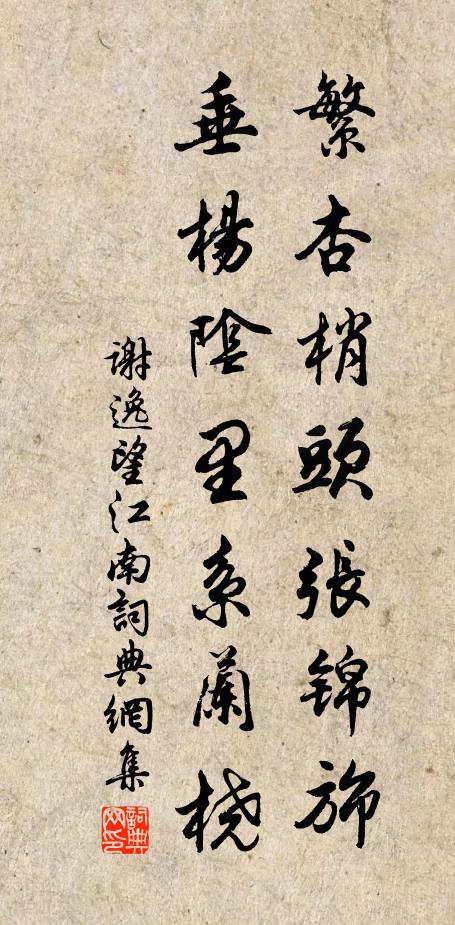 繁杏梢頭張錦旆
垂楊陰里系蘭橈
謝逸望江南詞典網集
詞典网印